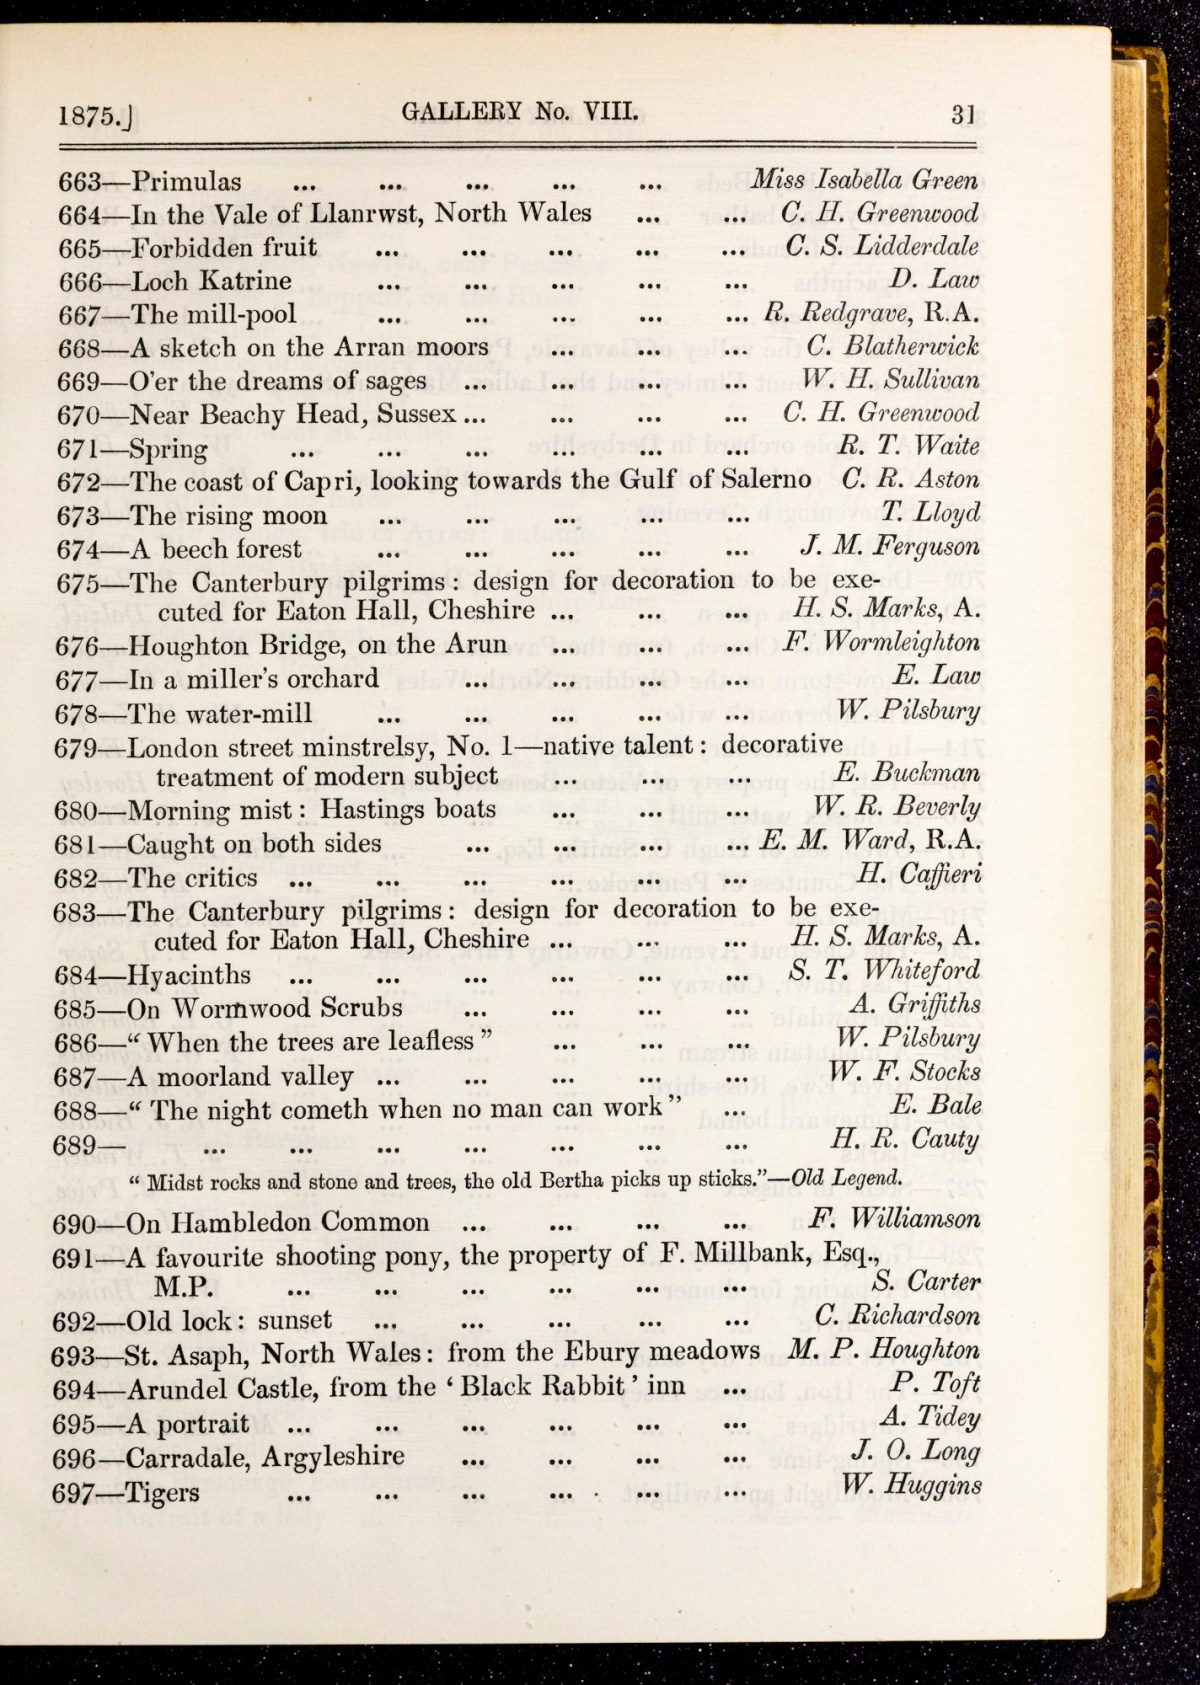 1875.] GALLERY No. VIII. 31
663—Primulas ... ... ... ... ... Miss Isabella Green
664—In the Vale of Llanrwst, North Wales ... ... C. H. Greenwood
665—Forbidden fruit ... ... ... ... ... C. S. Lidderdale
666—Loch Katrine ... ... ... ... ... D. Law
667—The mill-pool ... ... ... ... ... R. Redgrave, R.A.
668—A sketch on the Arran moors ... ... ... C. Blatherwick
669—O'er the dreams of sages ... ... ... ... W. H. Sullivan
670—Near Beachy Head, Sussex ... ... ... ... C. H. Greenwood
671—Spring ... ... ... ... ... ... R. T. Waite
672—The coast of Capri, looking towards the Gulf of Salerno C. R. Aston
673—The rising moon ... ... ... ... ... T. Lloyd
674—A beech forest ... ... ... ... ... J. M. Ferguson
675—The Canterbury pilgrims : design for decoration to be exe-
cuted for Eaton Hall, Cheshire ... ... ... H. S. Marks, A.
676—Houghton Bridge, on the Arun ... ... ... F. Wormleighton
677—In a miller's orchard ... ... ... ... E. Law
678—The water-mill ... ... ... ... ... W. Pilsbury
679—London street minstrelsy, No. 1—native talent : decorative
treatment of modern subject ... ... ... E. Buckman
680—Morning mist : Hastings boats ... ... ... W. R. Beverly
681—Caught on both sides ... ... ... ... E. M. Ward, R.A.
682—The critics ... ... ... ... ... ... H. Caffieri
683—The Canterbury pilgrims : design for decoration to be exe-
cuted for Eaton Hall, Cheshire ... ... ... H. S. Marks, A.
684—Hyacinths ... ... ... ... ... ... S. T. Whiteford
685—On Wormwood Scrubs ... ... ... ... A. Griffiths
686—“ When the trees are leafless ” ... ... ... W. Pilsbury
687—A moorland valley ... ... ... ... ... W. F. Stocks
688—“ The night cometh when no man can work ” ... E. Bale
689— ... ... ... ... ... ... ... H. R. Cauty
“ Midst rocks and stone and trees, the old Bertha picks up sticks.”—Old Legend.
690—On Hambledon Common ... ... ... ... F. Williamson
691—A favourite shooting pony, the property of F. Millbank, Esq.,
M.P. ... ... ... ... ... ... S. Carter
692—Old lock : sunset ... ... ... ... ... C. Richardson
693—St. Asaph, North Wales : from the Ebury meadows M. P. Houghton
694—Arundel Castle, from the ‘ Black Rabbit ’ inn ... P. Toft
695—A portrait ... ... ... ... ... ... A. Tidey
696—Carradale, Argyleshire ... ... ... ... J. O. Long
697—Tigers ... ... ... ... ... ... W. Huggins